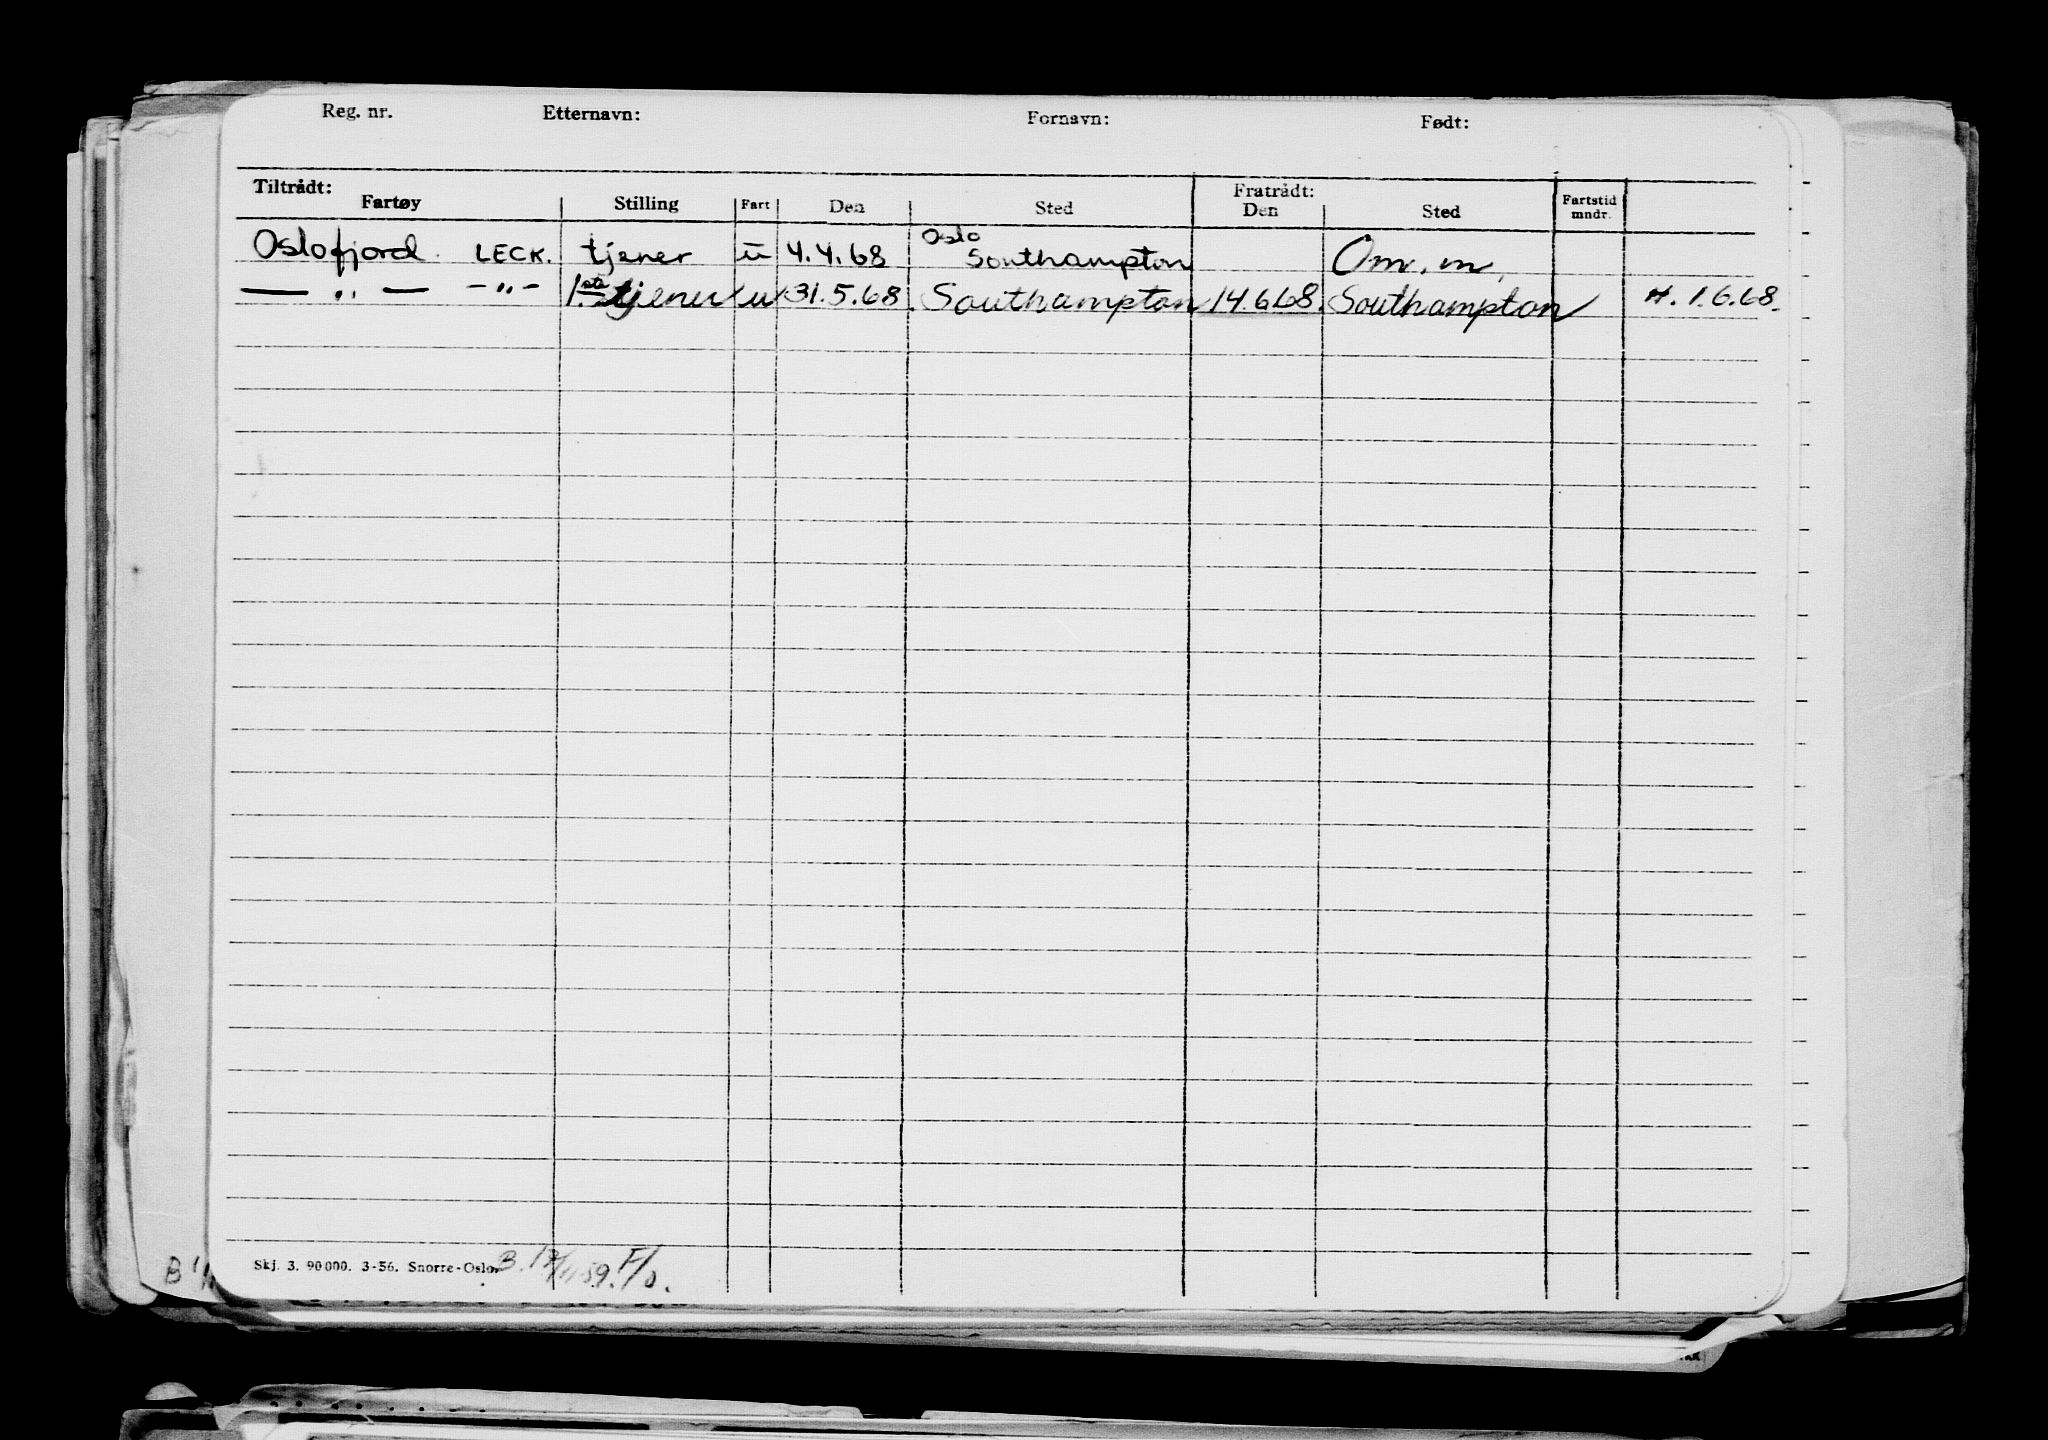 Reg. nr. Etternavn: Fornavn: Født:
Tiltrådt: Fratrådt:
Fartøy Stilling Fart Den Sted Den Sted Fartstid mndr.
Oslo
Oslofjord LECK. tjener u 4.4.68 Southampton Om. m.
— " — -"- tjener u 31.5.68 Southampton 14.6.68. Southampton H. 1.6.68.
Skj. 3. 90 000. 3-56. Snorre-Oslo.